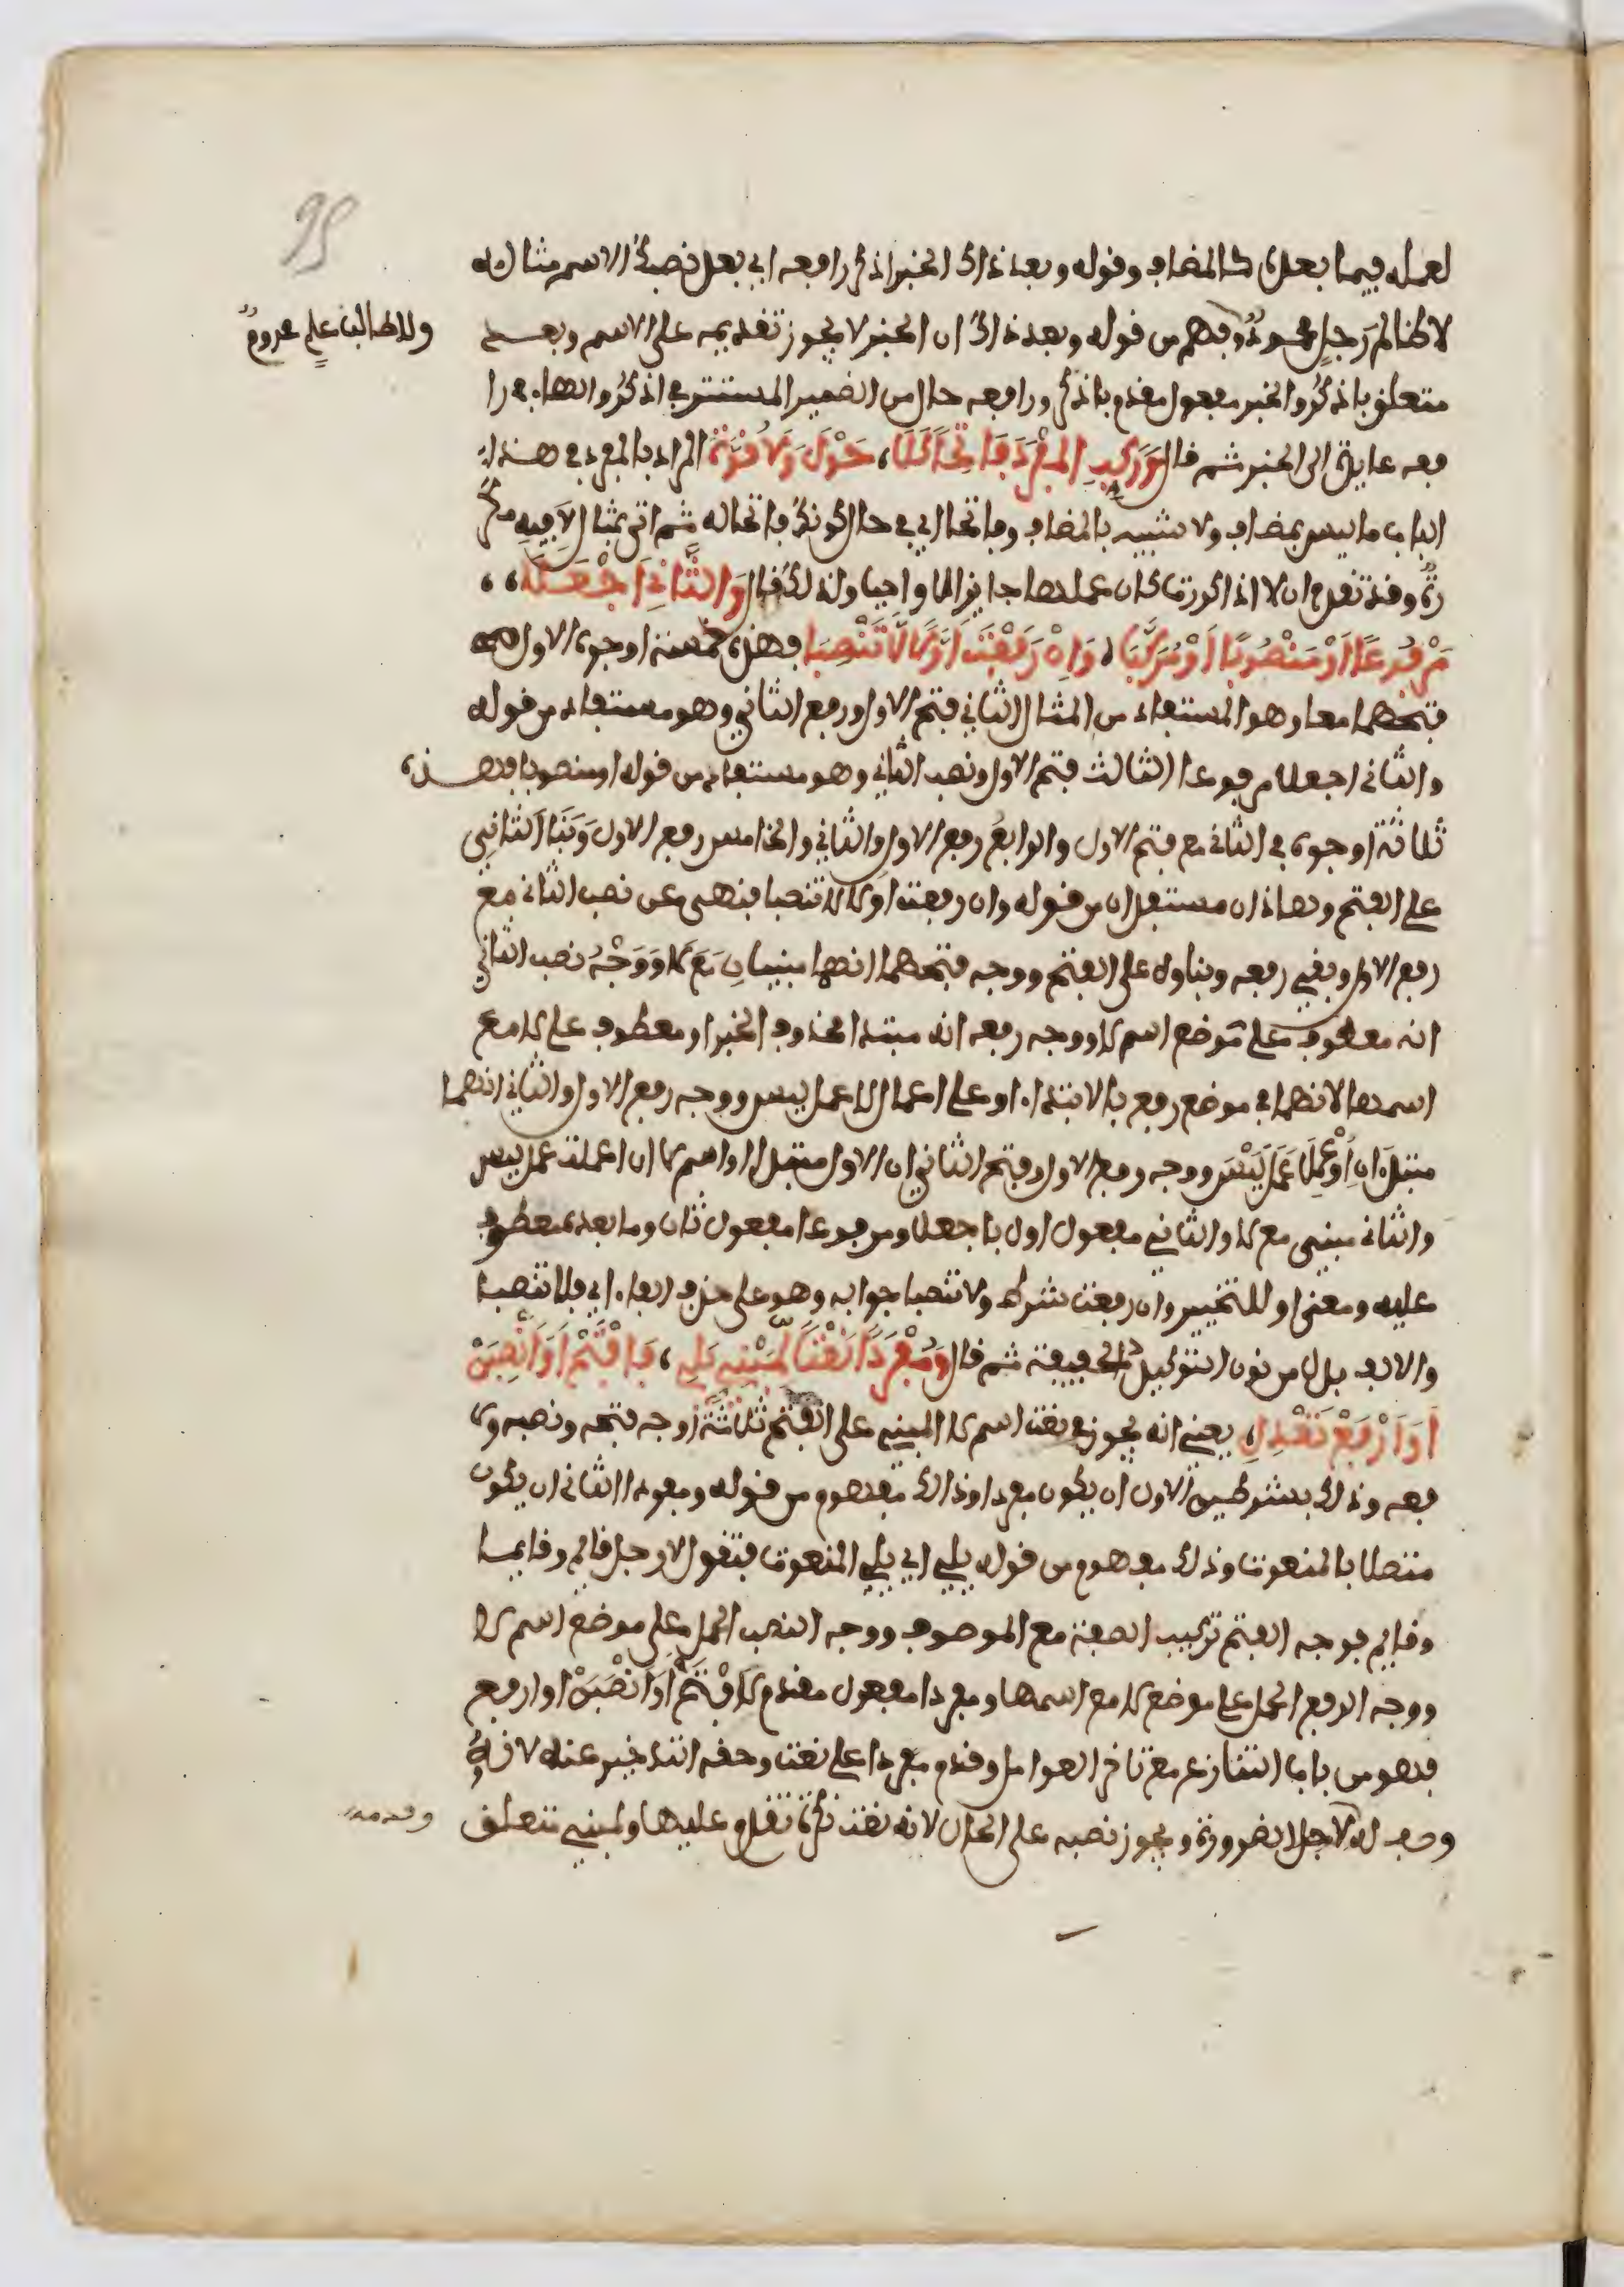 95
لعمله فيما بعده كالمضاف وقوله وبعد ذاك الخبر اذكر رافعه اي بعد نصبك الاسم مثاله
لا ظالم رجل محمود وفهم من قوله وبعد ذاك ان الخبر لا يجوز تقديمه على الاسم وبعد
ولا طالبا علم محروم
متعلق باذكر والخبر مفعول مقدم باذكر ورافعه حال من الضمير المستتر في اذكر والهاء في را
فعه عايدة الى الخبر ثم قال وَرَكِّبِ المُفْرَدَ فَاتِحًا كَلَا، حَوْلَ وَلَا قُوَّةَ المراد بالمفرد في هذا
الباب ما ليس بمضاف ولا شبيه بالمضاف وفاتحا اي في حال كونك فاتحا له ثم اتى بمثال لا فيه مكر
رة وقد تقدم ان لا اذا كررت كان عملها جايزا لا واجبا ولذلك قال وَالثَّانِي اجْعَلَا،،
مَرْفُوعًا اَوْ مَنْصُوبًا اَوْ مُرَكَّبَا، وَاِنْ رَفَعْتَ اَوَّلًا لَا تَنْصِبَا فهذه خمسة اوجه الاول
فتحهما معا وهو المستفاد من المثال الثاني فتح الاول ورفع الثاني وهو مستفاد من قوله
والثاني اجعلا مرفوعا الثالث فتح الاول ونصب الثاني وهو مستفاد من قوله او منصوبا فهذه
ثلاثة اوجه في الثاني مع فتح الاول والرابع رفع الاول والثاني والخامس رفع الاول وبنا الثاني
على الفتح وهاذان مستفدان من قوله وان رفعت اولا لا تنصبا فنهى عن نصب الثاني مع
رفع الاول وبقي رفعه وبناوه على الفتح ووجه فتحهما انهما مبنيان مع لا ووجه نصب الثاني
انه معطوف على موضع اسم لا ووجه رفعه انه مبتدا محذوف الخبر او معطوف على لا مع
اسمها لانهما في موضع رفع بالابتداء او على اعمال لا عمل ليس ووجه رفع الاول والثاني انهما
مبتدان او عملا عمل ليس ووجه رفع الاول وفتح الثاني ان الاول مبتدا او اسم لا ان اعملت عمل ليس
والثاني مبني مع لا والثاني مفعول اول باجعلا ومرفوعا مفعول ثان وما بعده معطوف
عليه ومعنى او للتخيير وان رفعت شرط ولا تنصبا جوابه وهو على حذف الفاء اي فلا تنصبا
والالف بدل من نون التوكيد الخفيفة ثم قال وَمُفْرَدًا نَعْتًا لِمَبْنِيٍّ يَلِي، فَافْتَحْ اَوَ انْصِبَنْ
اَوَ ارْفَعْ تَعْدِلِ، يعني انه يجوز في نعت اسم لا المبني على الفتح ثلاثة اوجه فتحه ونصبه ور
فعه وذلك بشرطين الاول ان يكون مفردا وذلك مفهوم من قوله ومفردا الثاني ان يكون
متصلا بالمنعوت وذلك مفهوم من قوله يلي اي يلي المنعوت فتقول لا رجل قايم وقايما
وقايم فوجه الفتح تركيب الصفة مع الموصوف ووجه النصب الحمل على موضع اسم لا
ووجه الرفع الحمل على موضع لا مع اسمها ومفردا مفعول مقدم لافتح او انصبن او ارفع
فهو من باب التنازع مع تاخر العوامل وقدم مفردا على نعت وحقه التاخير عنه لانه
وصف له لاجل الضرورة ويجوز نصبه على الحال لانه نعت نكرة تقدم عليها ولمبني متعلق